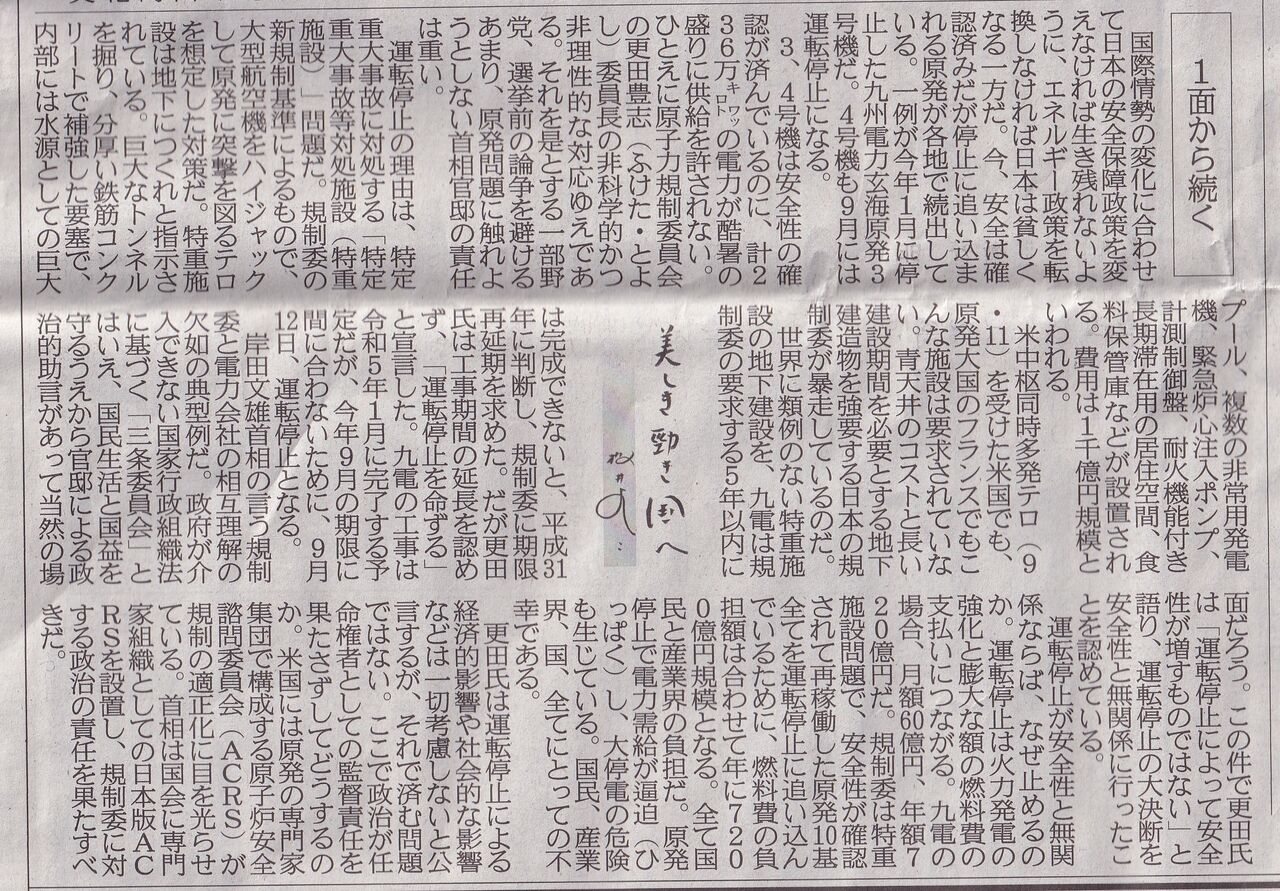 1面から続く
国際情勢の変化に合わせ
て日本の安全保障政策を変
えなければ生き残れないよ
うに、エネルギー政策を転
換しなければ日本は貧しく
なる一方だ。今、安全は確
認済みだが停止に追い込ま
れる原発が各地で続出して
いる。一例が今年1月に停
止した九州電力玄海原発3
号機だ。4号機も9月には
運転停止になる。
3、4号機は安全性の確
認が済んでいるのに、計2
36万キロワットの電力が酷暑の
盛りに供給を許されない。
ひとえに原子力規制委員会
の更田豊志（ふけた・とよ
し）委員長の非科学的かつ
非理性的な対応ゆえであ
る。それを是とする一部野
党、選挙前の論争を避ける
あまり、原発問題に触れよ
うとしない首相官邸の責任
は重い。
運転停止の理由は、特定
重大事故に対処する「特定
重大事故等対処施設（特重
施設）」問題だ。規制委の
新規制基準によるもので、
大型航空機をハイジャック
して原発に突撃を図るテロ
を想定した対策だ。特重施
設は地下につくれと指示さ
れている。巨大なトンネル
を掘り、分厚い鉄筋コンク
リートで補強した要塞で、
内部には水源としての巨大
プール、複数の非常用発電
機、緊急炉心注入ポンプ、
計測制御盤、耐火機能付き
長期滞在用の居住空間、食
料保管庫などが設置され
る。費用は1千億円規模と
いわれる。
米中枢同時多発テロ（9
・11）を受けた米国でも、
原発大国のフランスでもこ
んな施設は要求されていな
い。青天井のコストと長い
建設期間を必要とする地下
建造物を強要する日本の規
制委が暴走しているのだ。
世界に類例のない特重施
設の地下建設を、九電は規
制委の要求する5年以内に
美しき勁き国へ
は完成できないと、平成31
年に判断し、規制委に期限
再延期を求めた。だが更田
氏は工事期間の延長を認め
ず、「運転停止を命ずる」
と宣言した。九電の工事は
令和5年1月に完了する予
定だが、今年9月の期限に
間に合わないために、9月
12日、運転停止となる。
岸田文雄首相の言う規制
委と電力会社の相互理解の
欠如の典型例だ。政府が介
入できない国家行政組織法
に基づく、「三条委員会」と
はいえ、国民生活と国益を
守るうえから官邸による政
治的助言があって当然の場
面だろう。この件で更田氏
は「運転停止によって安全
性が増すものではない」と
語り、運転停止の大決断を
安全性と無関係に行ったこ
とを認めている。
運転停止が安全性と無関
係ならば、なぜ止めるの
か。運転停止は火力発電の
強化と膨大な額の燃料費の
支払いにつながる。九電の
場合、月額60億円、年額7
20億円だ。規制委は特重
施設問題で、安全性が確認
されて再稼働した原発10基
全てを運転停止に追い込ん
でいるために、燃料費の負
担額は合わせて年に720
0億円規模となる。全て国
民と産業界の負担だ。原発
停止で電力需給が逼迫（ひ
っぱく）し、大停電の危険
も生じている。国民、産業
界、国、全てにとっての不
幸である。
更田氏は運転停止による
経済的影響や社会的な影響
などは一切考慮しないと公
言するが、それで済む問題
ではない。ここで政治が任
命権者としての監督責任を
果たさずしてどうするの
か。米国には原発の専門家
集団で構成する原子炉安全
諮問委員会（ACRS）が
規制の適正化に目を光らせ
ている。首相は国会に専門
家組織としての日本版AC
RSを設置し、規制委に対
する政治の責任を果たすべ
きだ。